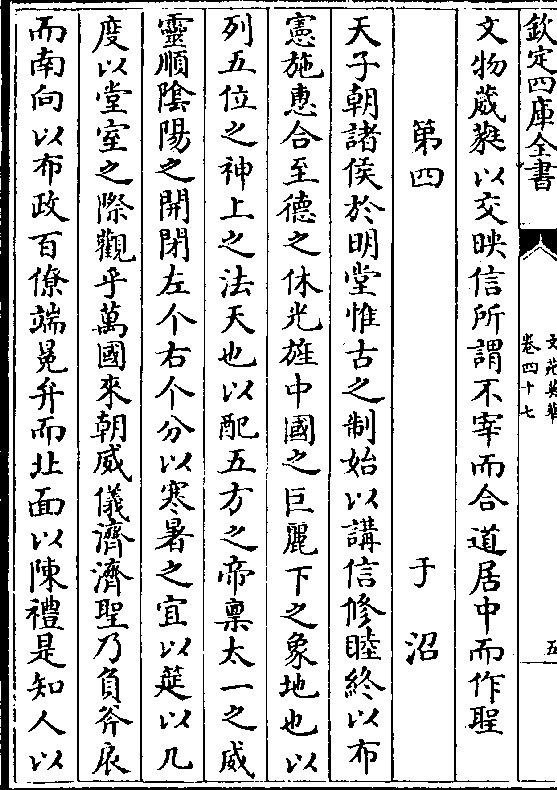 欽定四庫全書
文苑英華
卷四十七
五
文物葳蕤以交映信所謂不宰而合道居中而作聖
第四 于沼
天子朝諸侯於明堂惟古之制始以講信修睦終以布
憲施惠合至德之休光雄中國之巨麗下之象地也以
列五位之神上之法天也以配五方之帝稟太一之威
靈順陰陽之開閉左个右个分以寒暑之宜以筵以几
度以堂室之際觀乎萬國來朝威儀濟濟聖乃負斧扆
而南向以布政百僚端冕弁而北面以陳禮是知人以